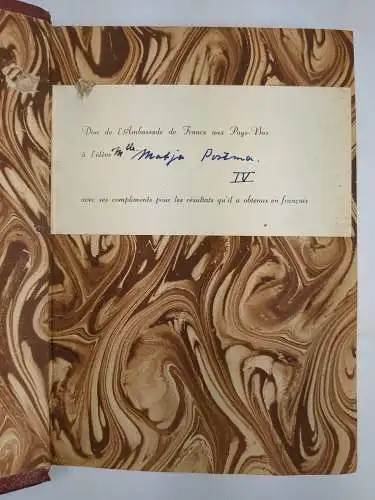 Don de l'Ambassade de France aux Pays-Bas
à l'élève Mlle Matja Postma.
IV
avec ses compliments pour les résultats qu'il a obtenus en français